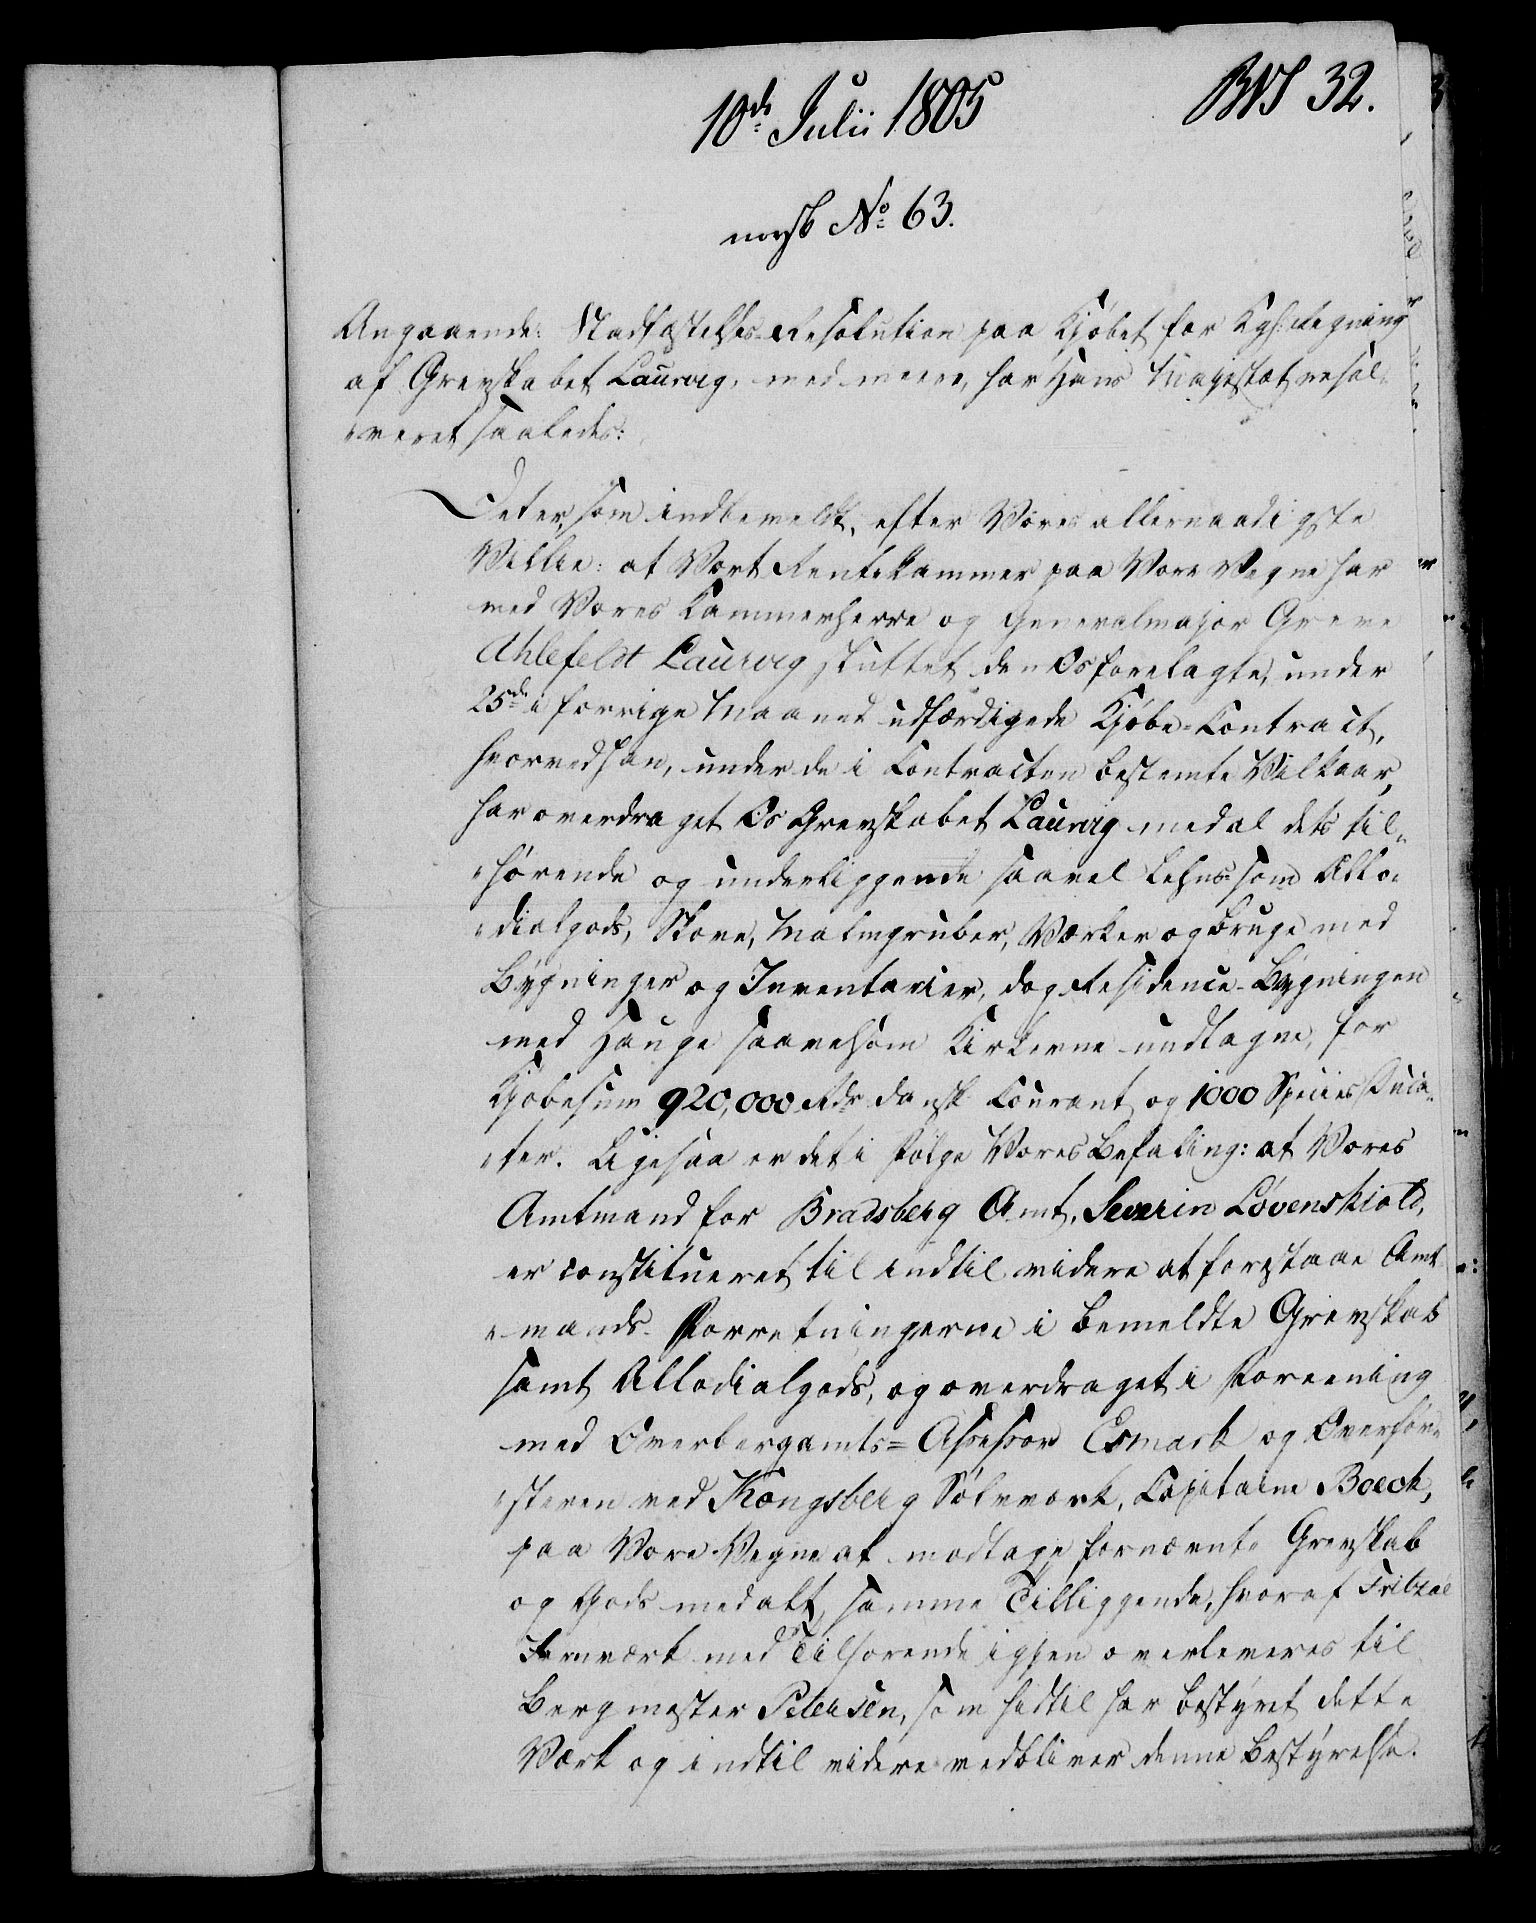 10de Julii 1805
BVJ 32.
norsk No 63.
Angaaende: Stadfæstelses-Resolution paa Kjøbet for Kgl: Regning
af Grevskabet Laurvig, med meere, har Hans Majestæt resol-
-veret saaledes:
Det er, som indbemeldt, efter Vores allernaadigste
Villie: at Vort Rentekammer paa Vore Vegne har
med Vores Kammerherre og Generalmajor Greve
Ahlefeldt Laurvig sluttet den Os forelagte, under
25de i forrige Maaned udfærdigede Kjøbe-Contract,
hvorved han, under de i Contracten bestemte Vilkaar,
har overdraget Os Grevskabet Laurvig med al dets til-
-hørende og underliggende saavel Lehns som Allo-
-dialgods, Skove, Malmgruber, Værker og Bruge med
Bygninger og Inventarier, dog Residence-Bygningen
med Hauge saavelsom Kirkerne undtagne, for
Kjøbesum 920,000 Rdr dansk Courant og 1000 Species Duca-
-ter. Ligesaa er det i Følge Vores Befaling: at Vores
Amtmand for Bradsberg Amt, Severin Løvenskiold,
er constitueret til indtil videre at forestaae Amt-
-mands-Forretningerne i bemeldte Grevskab
samt Allodialgods, og overdraget i Foreening
med Overbergamts=Assessor Esmark og Overfør-
-steren ved Kongsberg Sølvværk, Capitaine Boeck,
paa Vore Vegne at modtage fornævnte Grevskab
og Gods med alt samme Tilliggende, hvoraf Fritzøe
Jernværk med Tilhørende igjen overleveres til
Bergmester Petersen, som hidtil har bestyret dette
Værk og indtil videre vedbliver denne Bestyrelse.